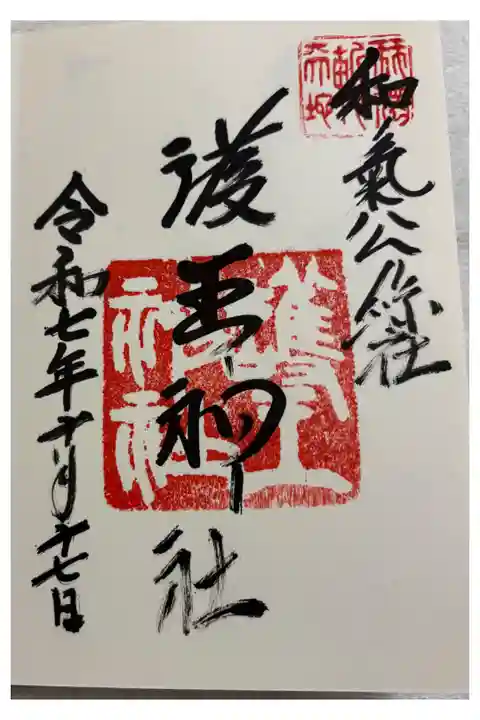 和氣公綜社
護王神社
護王
神社
令和七年十一月十七日